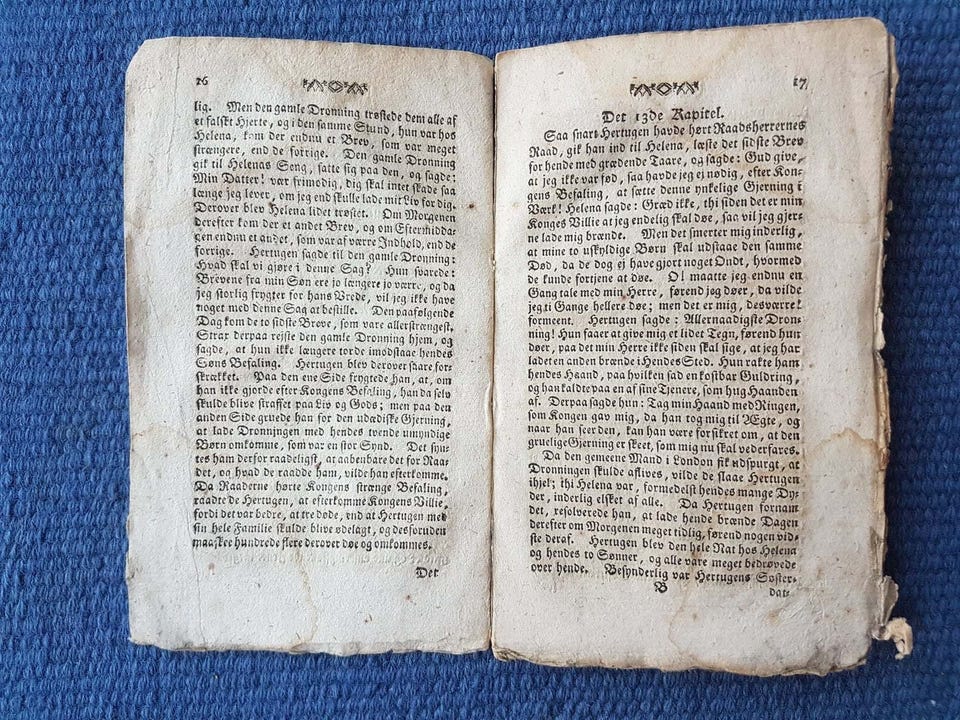 16
lig. Men den gamle Dronning trøstede dem alle af
et falskt Hjerte, og i den samme Stund, hun var hos
Helena, kom der endnu et Brev, som var meget
strængere, end de forrige. Den gamle Dronning
gik til Helenas Seng, satte sig paa den, og sagde:
Min Datter! vær frimodig, dig skal intet skade saa
længe jeg lever, om jeg end skulle lade mit Liv for dig.
Derover blev Helena lidet trøstet. Om Morgenen
derefter kom der et andet Brev, og om Eftermidda-
gen endnu et andet, som var af værre Indhold, end de
forrige. Hertugen sagde til den gamle Dronning:
Hvad skal vi gjøre i denne Sag? Hun svarede:
Brevene fra min Søn ere jo længere jo værre, og da
jeg storlig frygter for hans Vrede, vil jeg ikke have
noget med denne Sag at bestille. Den paafølgende
Dag kom de to sidste Breve, som vare allerstrængest,
Strax derpaa reiste den gamle Dronning hjem, og
sagde, at hun ikke længere torde imodstaae hendes
Søns Befaling. Hertugen blev derover saare for-
skrækket. Paa den ene Side frygtede han, at, om
han ikke gjorde efter Kongens Befaling, han da selv
skulde blive straffet paa Liv og Gods; men paa den
anden Side gruede han for den udædiske Gjerning,
at lade Dronningen med hendes tvende umyndige
Børn omkomme, som var en stor Synd. Det syn-
tes ham derfor raadeligst, at aabenbare det for Raa-
det, og hvad de raadde ham, vilde han efterkomme.
Da Raaderne hørte Kongens strænge Befaling,
raadte de Hertugen, at efterkomme Kongens Villie,
fordi det var bedre, at tre døde, end at Hertugen med
sin hele Familie skulde blive ødelagt, og desforuden
maaskee hundrede flere derover døe og omkommes.
Det
17
Det 13de Kapitel.
Saa snart Hertugen havde hørt Raadsherrernes
Raad, gik han ind til Helena, læste det sidste Brev
for hende med grædende Taare, og sagde: Gud give,
at jeg ikke var fød, saa havde jeg ei nødig, efter Kon-
gens Befaling, at sætte denne ynkelige Gjerning i
Værk! Helena sagde: Græd ikke, thi siden det er min
Konges Villie at jeg endelig skal døe, saa vil jeg gjer-
ne lade mig brænde. Men det smerter mig inderlig,
at mine to uskyldige Børn skal udstaae den samme
Død, da de dog ej have gjort noget Ondt, hvormed
de kunde fortjene at døe. O! maatte jeg endnu en
Gang tale med min Herre, førend jeg døer, da vilde
jeg ti Gange hellere døe; men det er mig, desværre!
formeent. Hertugen sagde: Allernaadigste Dron-
ning! Hun faaer at give mig et lidet Tegn, førend hun
døer, paa det min Herre ikke siden skal sige, at jeg har
ladet en anden brænde i Hendes Sted. Hun rakte ham
hendes Haand, paa hvilken sad en kostbar Guldring,
og han kaldte paa en af sine Tjenere, som hug Haanden
af. Derpaa sagde hun: Tag min Haand med Ringen,
som Kongen gav mig, da han tog mig til Ægte, og
naar han seer den, kan han være forsikret om, at den
gruelige Gjerning er skeet, som mig nu skal vederfares.
Da den gemeene Mand i London fik udspurgt, at
Dronningen skulde aflives, vilde de slaae Hertugen
ihjel; thi Helena var, formedelst hendes mange Dy-
der, inderlig elsket af alle. Da Hertugen fornam
det, resolverede han, at lade hende brænde Dagen
derefter om Morgenen meget tidlig, førend nogen vid-
ste deraf. Hertugen blev den hele Nat hos Helena
og hendes to Sønner, og alle vare meget bedrøvede
over hende. Besynderlig var Hertugens Søster-
B
dat-